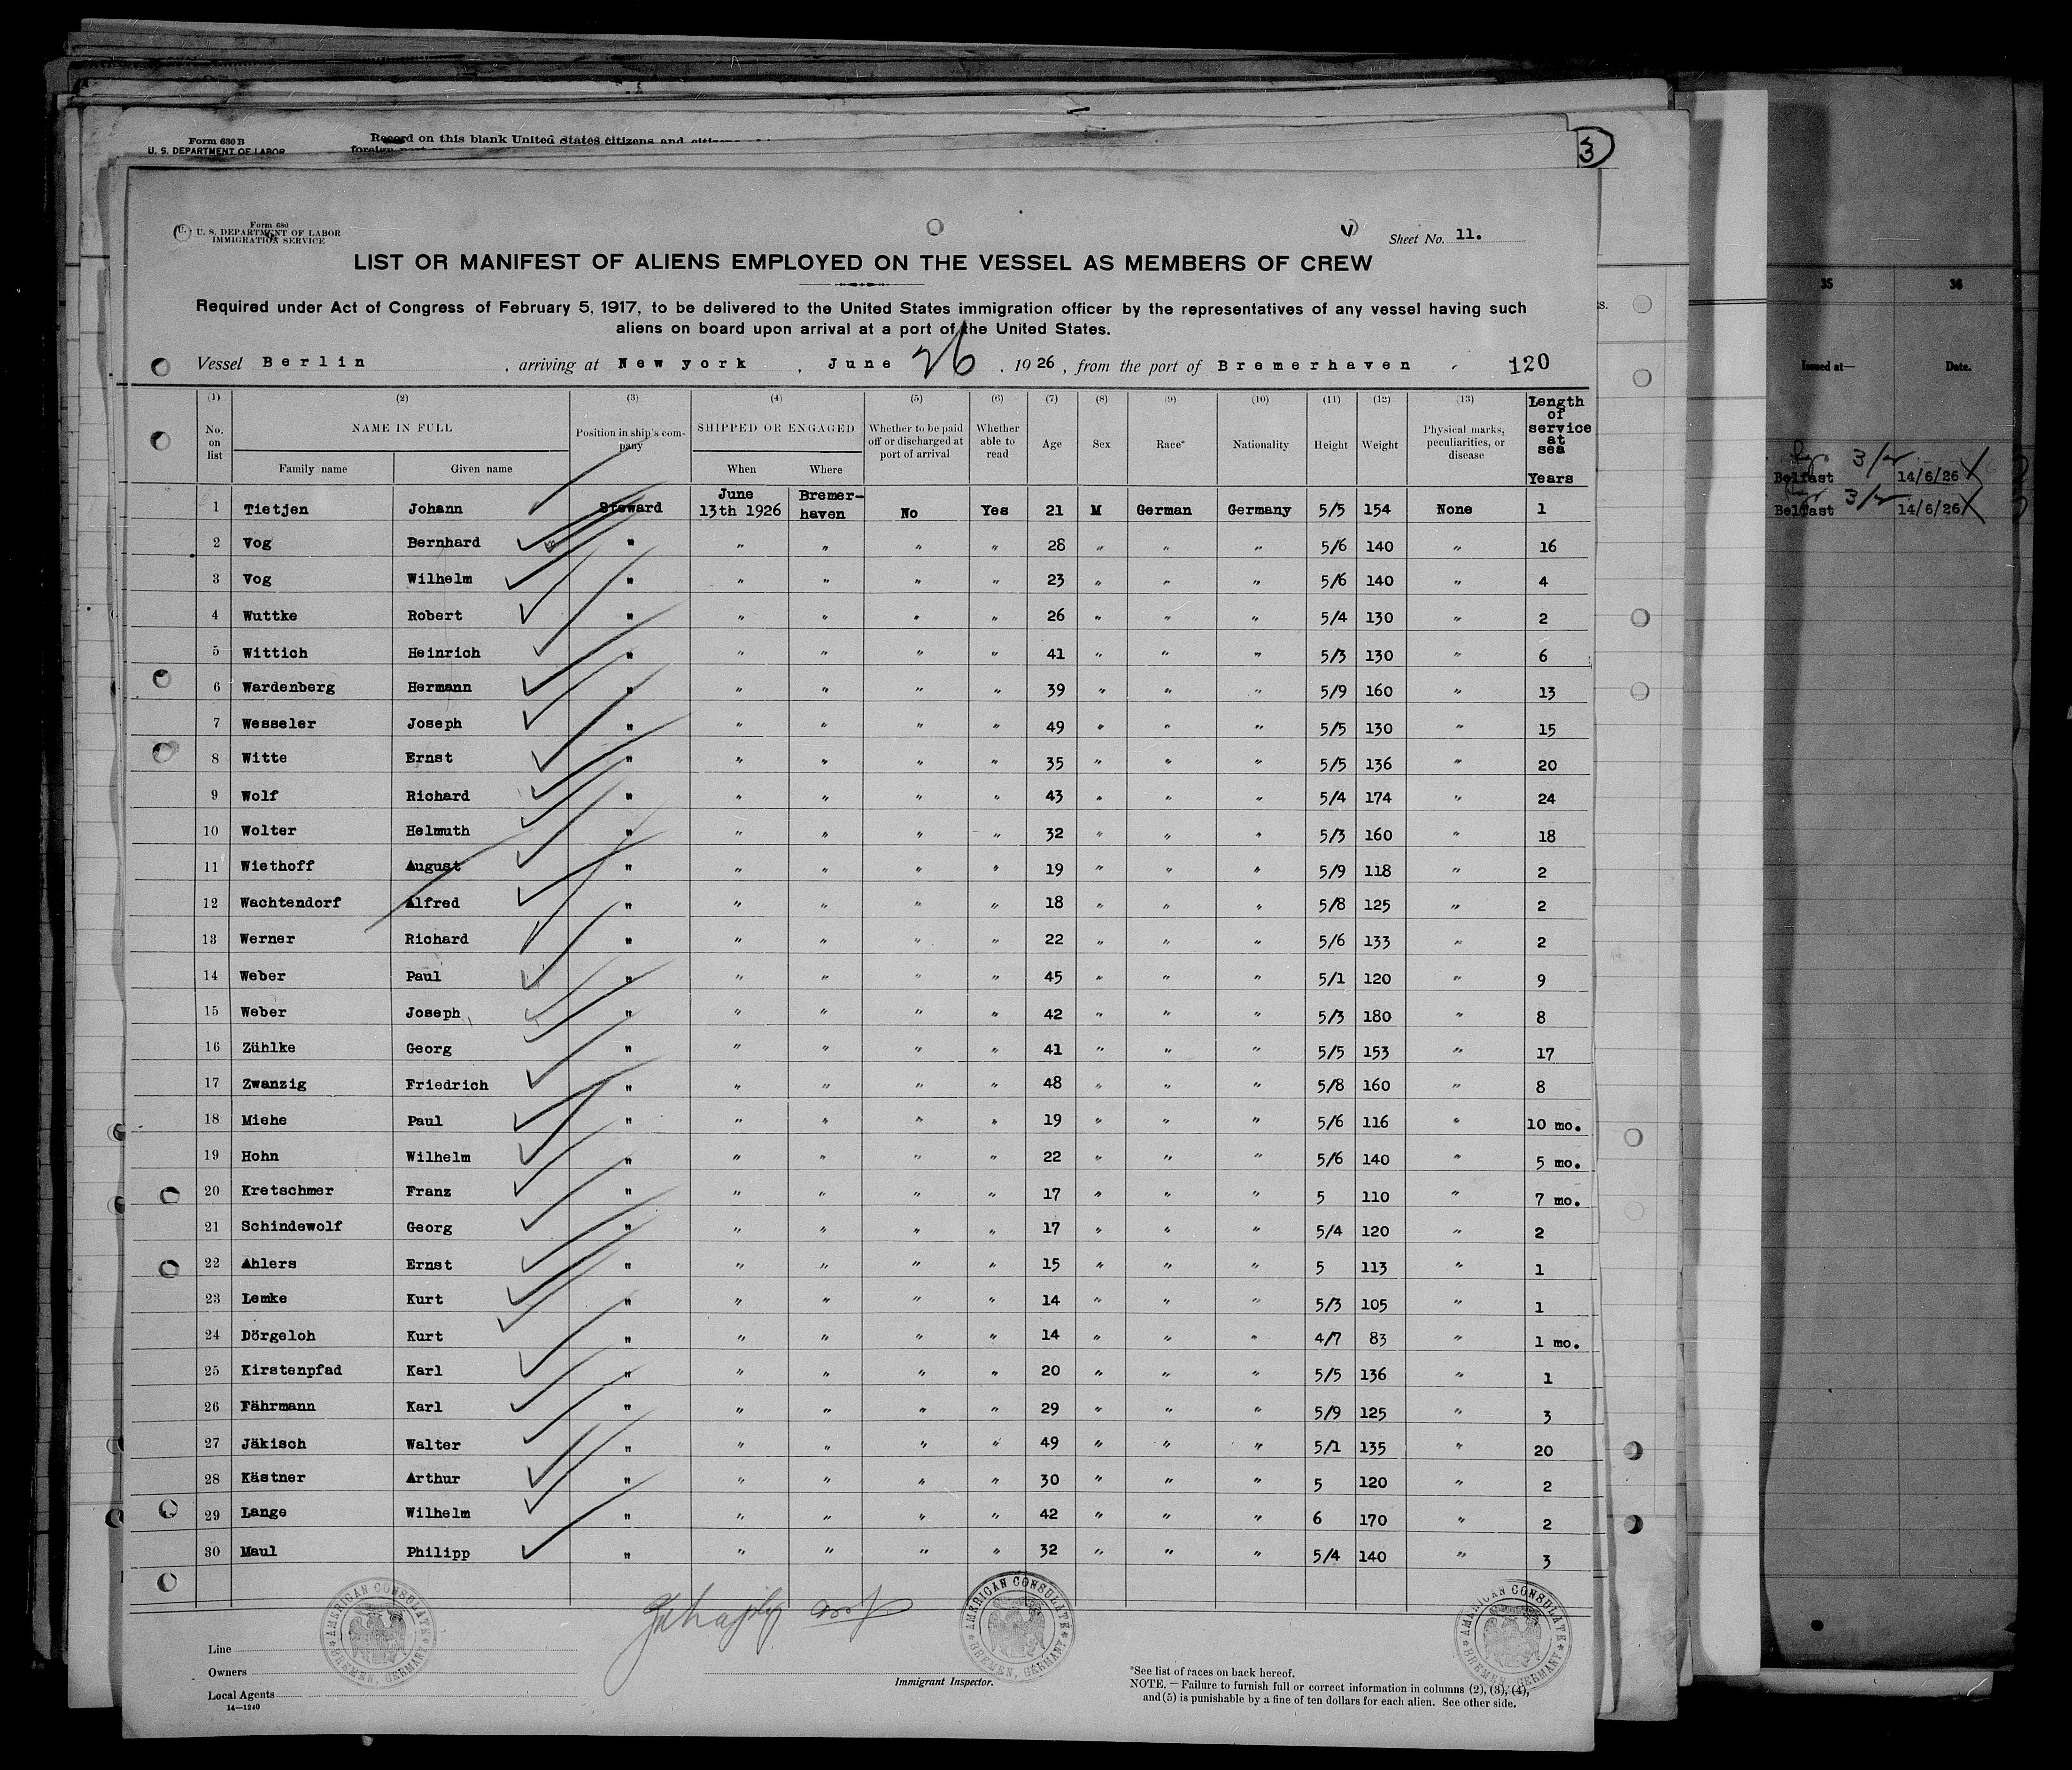 Form 630 B
U. S. DEPARTMENT OF LABOR
Record on this blank United States citizens and
foreign port
3
Form 680
U. S. DEPARTMENT OF LABOR
IMMIGRATION SERVICE
Sheet No. 11.
LIST OR MANIFEST OF ALIENS EMPLOYED ON THE VESSEL AS MEMBERS OF CREW
Required under Act of Congress of February 5, 1917, to be delivered to the United States immigration officer by the representatives of any vessel having such
aliens on board upon arrival at a port of the United States.
Vessel Berlin , arriving at New york , June 26 , 1926 , from the port of Bremerhaven . 120
(1) (2) (3) (4) (5) (6) (7) (8) (9) (10) (11) (12) (13) Length of service at sea Years
No. on list NAME IN FULL Position in ship's company SHIPPED OR ENGAGED Whether to be paid off or discharged at port of arrival Whether able to read Age Sex Race* Nationality Height Weight Physical marks, peculiarities, or disease
Family name Given name When Where
1 Tietjen Johann Steward June 13th 1926 Bremerhaven No Yes 21 M German Germany 5/5 154 None 1
2 Vog Bernhard " " " " " 28 " " " 5/6 140 " 16
3 Vog Wilhelm " " " " " 23 " " " 5/6 140 " 4
4 Wuttke Robert " " " " " 26 " " " 5/4 130 " 2
5 Wittich Heinrich " " " " " 41 " " " 5/3 130 " 6
6 Wardenberg Hermann " " " " " 39 " " " 5/9 160 " 13
7 Wesseler Joseph " " " " " 49 " " " 5/5 130 " 15
8 Witte Ernst " " " " " 35 " " " 5/5 136 " 20
9 Wolf Richard " " " " " 43 " " " 5/4 174 " 24
10 Wolter Helmuth " " " " " 32 " " " 5/3 160 " 18
11 Wiethoff August " " " " " 19 " " " 5/9 118 " 2
12 Wachtendorf Alfred " " " " " 18 " " " 5/8 125 " 2
13 Werner Richard " " " " " 22 " " " 5/6 133 " 2
14 Weber Paul " " " " " 45 " " " 5/1 120 " 9
15 Weber Joseph " " " " " 42 " " " 5/3 180 " 8
16 Zühlke Georg " " " " " 41 " " " 5/5 153 " 17
17 Zwanzig Friedrich " " " " " 48 " " " 5/8 160 " 8
18 Miehe Paul " " " " " 19 " " " 5/6 116 " 10 mo.
19 Hohn Wilhelm " " " " " 22 " " " 5/6 140 " 5 mo.
20 Kretschmer Franz " " " " " 17 " " " 5 110 " 7 mo.
21 Schindewolf Georg " " " " " 17 " " " 5/4 120 " 2
22 Ahlers Ernst " " " " " 15 " " " 5 113 " 1
23 Lemke Kurt " " " " " 14 " " " 5/3 105 " 1
24 Dörgeloh Kurt " " " " " 14 " " " 4/7 83 " 1 mo.
25 Kirstenpfad Karl " " " " " 20 " " " 5/5 136 " 1
26 Fährmann Karl " " " " " 29 " " " 5/9 125 " 3
27 Jäkisch Walter " " " " " 49 " " " 5/1 135 " 20
28 Kästner Arthur " " " " " 30 " " " 5 120 " 2
29 Lange Wilhelm " " " " " 42 " " " 6 170 " 2
30 Maul Philipp " " " " " 32 " " " 5/4 140 " 3
AMERICAN CONSULATE BREMEN, GERMANY
AMERICAN CONSULATE BREMEN, GERMANY
AMERICAN CONSULATE BREMEN, GERMANY
Line
Owners
Local Agents
14—1240
Immigrant Inspector.
*See list of races on back hereof.
NOTE. — Failure to furnish full or correct information in columns (2), (3), (4),
and (5) is punishable by a fine of ten dollars for each alien. See other side.
35 36
Issued at— Date.
Belfast 14/6/26
Belfast 14/6/26